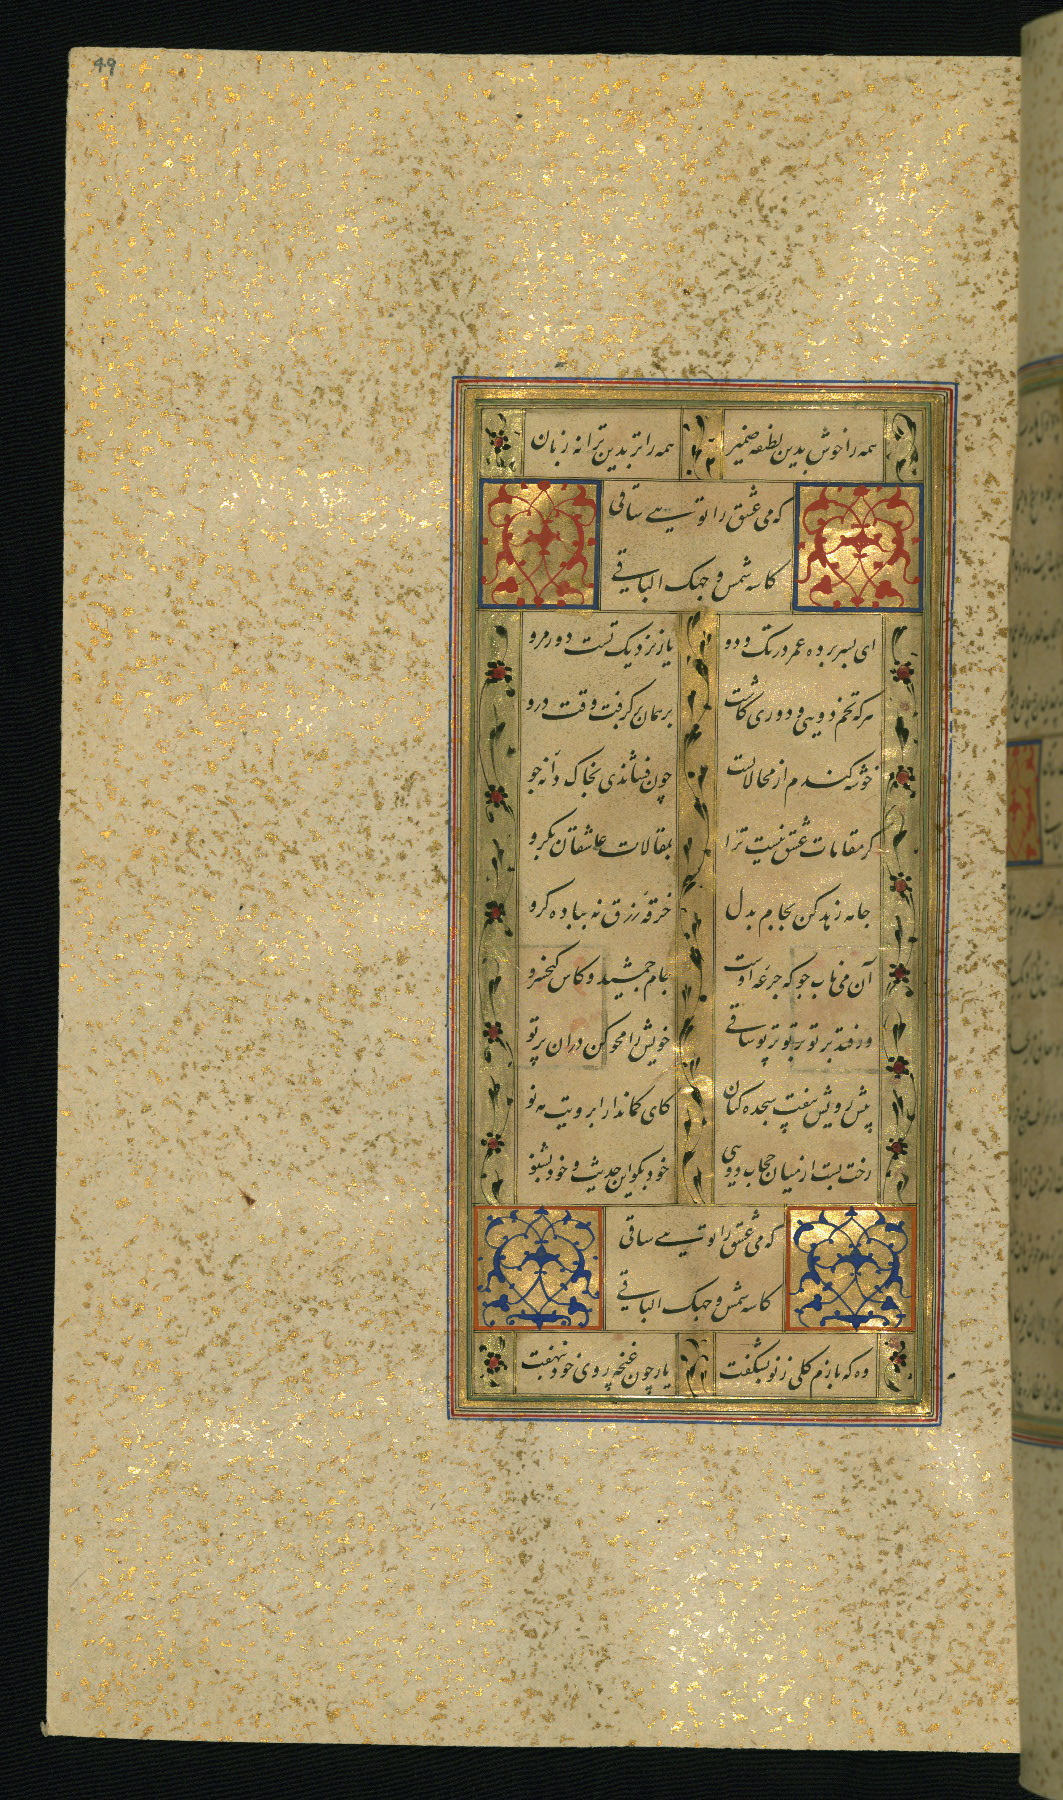 49
همه را خوش بدین لطیفه ضمیر همه را تر بدین ترانه زبان
که می عشق را تویی ساقی
کاسه شمس وجهک الباقی
ای بسر برده عمر در تک و دو یار نزدیک تست دور مرو
هر که تخم دویی و دوری کاشت برهمان گرفت وقت درو
خوشه گندم از محالاتست چون فشاندی بخاک دانه جو
گر مقامات عشق نیست ترا بمقالات عاشقان بگرو
جامه زهد کن بجام بدل خرقه زرق نه بباده گرو
آن می ناب جو که جرعه اوست جام جمشید و کاس کیخسرو
ور فتد بر تو پرتو ساقی خویش را محو کن دران پرتو
پیش رویش بیفت سجده کنان کای کماندار ابرویت مه نو
رخت بست از میان حجاب دویی خود بگو این حدیث و خود بشنو
که می عشق را تویی ساقی
کاسه شمس وجهک الباقی
وه که بازم گلی ز نو بشگفت یار چون غنچه روی خود بنهفت